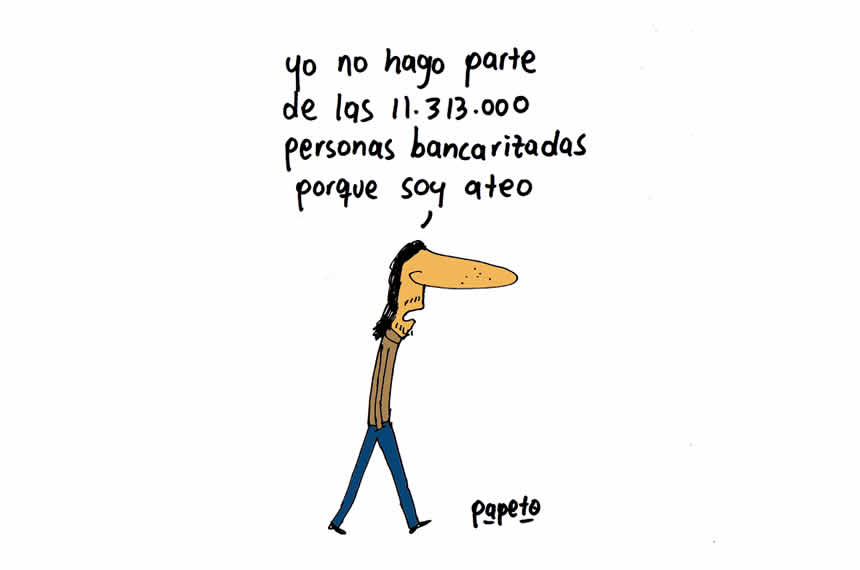 yo no hago parte
de las 11.313.000
personas bancarizadas
porque soy ateo
papeto